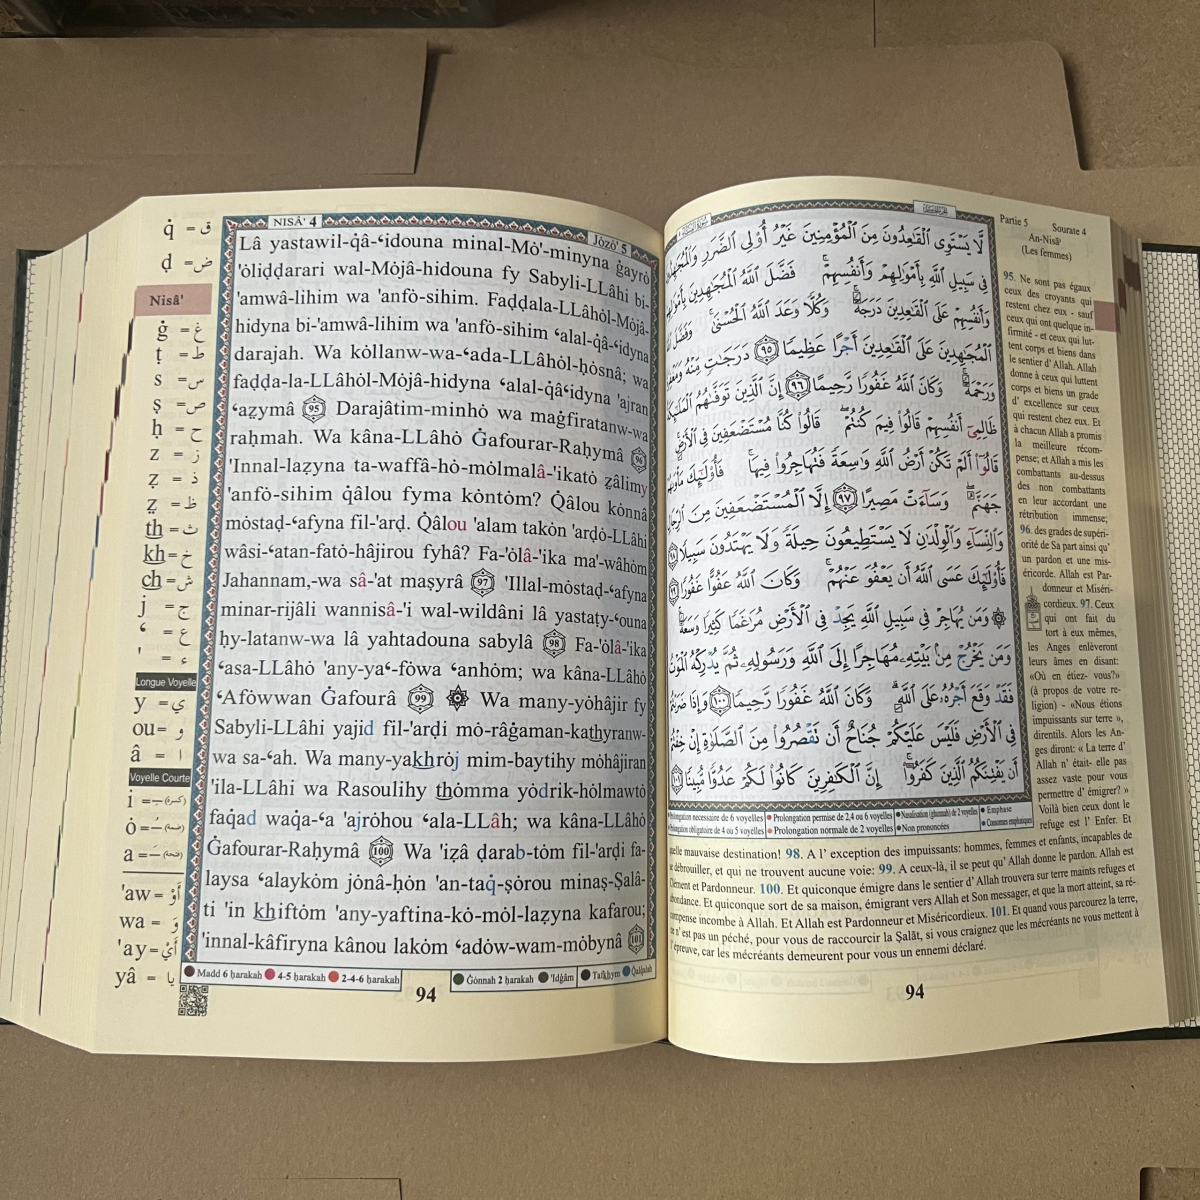 q̇ = ق
ḍ = ض
Nisâ'
ġ = غ
ṭ = ط
s = س
ṣ = ص
ḥ = ح
z = ز
ẓ = ذ
ẓ = ظ
th = ث
kh = خ
ch = ش
j = ج
ʿ = ع
' = ء
Longue Voyelle
y = ي
ou = و
â = ا
Voyelle Courte
i = (كسرة)
ȯ = (ضمة)
a = (فتحة)
'aw = أَوْ
wa = وَ
'ay = أَيْ
yâ = يا
NISÂ' 4
Jȯzȯ' 5
Lâ yastawil-q̇â-ʿidouna minal-Mȯ'-minyna ġayrȯ
'ȯliḍḍarari wal-Mȯjâ-hidouna fy Sabyli-LLâhi bi-
'amwâ-lihim wa 'anfȯ-sihim. Faḍḍala-LLâhȯl-Mȯjâ-
hidyna bi-'amwâ-lihim wa 'anfȯ-sihim ʿalal-q̇â-ʿidyna
darajah. Wa kȯllanw-wa-ʿada-LLâhȯl-ḥȯsnâ; wa
faḍḍa-la-LLâhȯl-Mȯjâ-hidyna ʿalal-q̇âʿidyna 'ajran
ʿaẓymâ 95 Darajâtim-minhȯ wa maġfiratanw-wa
raḥmah. Wa kâna-LLâhȯ Ġafourar-Raḥymâ 96
'Innal-laẓyna ta-waffâ-hȯ-mȯlmalâ-'ikatȯ ẓâlimy
'anfȯ-sihim q̇âlou fyma kȯntȯm? Q̇âlou kȯnnâ
mȯstaḍ-ʿafyna fil-'arḍ. Q̇âlou 'alam takȯn 'arḍȯ-LLâhi
wâsi-ʿatan-fatȯ-hâjirou fyhâ? Fa-'ȯlâ-'ika ma'-wâhȯm
Jahannam,-wa sâ-'at maṣyrâ 97 'Illal-mȯstaḍ-ʿafyna
minar-rijâli wannisâ-'i wal-wildâni lâ yastaṭy-ʿouna
ḥy-latanw-wa lâ yahtadouna sabylâ 98 Fa-'ȯlâ-'ika
ʿasa-LLâhȯ 'any-yaʿ-fȯwa ʿanhȯm; wa kâna-LLâhȯ
ʿAfȯwwan Ġafourâ 99 ۞ Wa many-yȯhâjir fy
Sabyli-LLâhi yajid fil-'arḍi mȯ-râġaman-kathyranw-
wa sa-ʿah. Wa many-yakhrȯj mim-baytihy mȯhâjiran
'ila-LLâhi wa Rasoulihy thȯmma yȯdrik-hȯlmawtȯ
faq̇ad waq̇a-ʿa 'ajrȯhou ʿala-LLâh; wa kâna-LLâhȯ
Ġafourar-Raḥymâ 100 Wa 'iẓâ ḍarab-tȯm fil-'arḍi fa-
laysa ʿalaykȯm jȯnâ-ḥȯn 'an-taq̇-ṣȯrou minaṣ-Ṣalâ-
ti 'in khiftȯm 'any-yaftina-kȯ-mȯl-laẓyna kafarou;
'innal-kâfiryna kânou lakȯm ʿadȯw-wam-mȯbynâ 101
Madd 6 ḥarakah 4-5 ḥarakah 2-4-6 ḥarakah Ġȯnnah 2 ḥarakah 'Idġâm Tafkhym Q̇alq̇alah
94
لَّا يَسْتَوِى ٱلْقَٰعِدُونَ مِنَ ٱلْمُؤْمِنِينَ غَيْرُ أُو۟لِى ٱلضَّرَرِ
فِى سَبِيلِ ٱللَّهِ بِأَمْوَٰلِهِمْ وَأَنفُسِهِمْ ۚ فَضَّلَ ٱللَّهُ ٱلْمُجَٰهِدِينَ
وَأَنفُسِهِمْ عَلَى ٱلْقَٰعِدِينَ دَرَجَةً ۚ وَكُلًّا وَعَدَ ٱللَّهُ ٱلْحُسْنَىٰ ۚ وَفَضَّلَ
ٱلْمُجَٰهِدِينَ عَلَى ٱلْقَٰعِدِينَ أَجْرًا عَظِيمًا ٩٥ دَرَجَٰتٍ مِّنْهُ
وَرَحْمَةً ۚ وَكَانَ ٱللَّهُ غَفُورًا رَّحِيمًا ٩٦ إِنَّ ٱلَّذِينَ تَوَفَّىٰهُمُ
ظَالِمِىٓ أَنفُسِهِمْ قَالُوا۟ فِيمَ كُنتُمْ ۖ قَالُوا۟ كُنَّا مُسْتَضْعَفِينَ فِى ٱلْأَرْضِ ۚ
قَالُوٓا۟ أَلَمْ تَكُنْ أَرْضُ ٱللَّهِ وَٰسِعَةً فَتُهَاجِرُوا۟ فِيهَا ۚ فَأُو۟لَٰٓئِكَ
جَهَنَّمُ ۖ وَسَآءَتْ مَصِيرًا ٩٧ إِلَّا ٱلْمُسْتَضْعَفِينَ مِنَ
وَٱلنِّسَآءِ وَٱلْوِلْدَٰنِ لَا يَسْتَطِيعُونَ حِيلَةً وَلَا يَهْتَدُونَ سَبِيلًا
فَأُو۟لَٰٓئِكَ عَسَى ٱللَّهُ أَن يَعْفُوَ عَنْهُمْ ۚ وَكَانَ ٱللَّهُ عَفُوًّا غَفُورًا
۞ وَمَن يُهَاجِرْ فِى سَبِيلِ ٱللَّهِ يَجِدْ فِى ٱلْأَرْضِ مُرَٰغَمًا كَثِيرًا وَسَعَةً ۚ
وَمَن يَخْرُجْ مِنۢ بَيْتِهِۦ مُهَاجِرًا إِلَى ٱللَّهِ وَرَسُولِهِۦ ثُمَّ يُدْرِكْهُ ٱلْمَوْتُ
فَقَدْ وَقَعَ أَجْرُهُۥ عَلَى ٱللَّهِ ۗ وَكَانَ ٱللَّهُ غَفُورًا رَّحِيمًا ١٠٠ وَإِذَا
فِى ٱلْأَرْضِ فَلَيْسَ عَلَيْكُمْ جُنَاحٌ أَن تَقْصُرُوا۟ مِنَ ٱلصَّلَوٰةِ إِنْ خِفْتُمْ
أَن يَفْتِنَكُمُ ٱلَّذِينَ كَفَرُوٓا۟ ۚ إِنَّ ٱلْكَٰفِرِينَ كَانُوا۟ لَكُمْ عَدُوًّا مُّبِينًا ١٠١
nécessaire de 6 voyelles Prolongation permise de 2,4 ou 6 voyelles Nasalisation (ghunnah) de 2 voyelles Emphase
obligatoire de 4 ou 5 voyelles Prolongation normale de 2 voyelles Non prononcées Consonnes emphatiques
Partie 5
Sourate 4
An-Nisâ'
(Les femmes)
95. Ne sont pas égaux
ceux des croyants qui
restent chez eux - sauf
ceux qui ont quelque in-
firmité - et ceux qui lut-
tent corps et biens dans
le sentier d' Allah. Allah
donne à ceux qui luttent
corps et biens un grade
d' excellence sur ceux
qui restent chez eux. Et
à chacun Allah a promis
la meilleure récom-
pense; et Allah a mis les
combattants au-dessus
des non combattants
en leur accordant une
rétribution immense;
96. des grades de supéri-
orité de Sa part ainsi qu'
un pardon et une mis-
éricorde. Allah est Par-
donneur et Miséri-
cordieux. 97. Ceux
qui ont fait du
tort à eux mêmes,
les Anges enlèveront
leurs âmes en disant:
«Où en étiez- vous?»
(à propos de votre re-
ligion) - «Nous étions
impuissants sur terre »,
dirent ils. Alors les An-
ges diront: « La terre d'
Allah n' était- elle pas
assez vaste pour vous
permettre d' émigrer? »
Voilà bien ceux dont le
refuge est l' Enfer. Et
quelle mauvaise destination! 98. A l' exception des impuissants: hommes, femmes et enfants, incapables de
se débrouiller, et qui ne trouvent aucune voie: 99. A ceux-là, il se peut qu' Allah donne le pardon. Allah est
Clément et Pardonneur. 100. Et quiconque émigre dans le sentier d' Allah trouvera sur terre maints refuges et
abondance. Et quiconque sort de sa maison, émigrant vers Allah et Son messager, et que la mort atteint, sa ré-
compense incombe à Allah. Et Allah est Pardonneur et Miséricordieux. 101. Et quand vous parcourez la terre,
ce n' est pas un péché, pour vous de raccourcir la Ṣalāt, si vous craignez que les mécréants ne vous mettent à
l'épreuve, car les mécréants demeurent pour vous un ennemi déclaré.
94